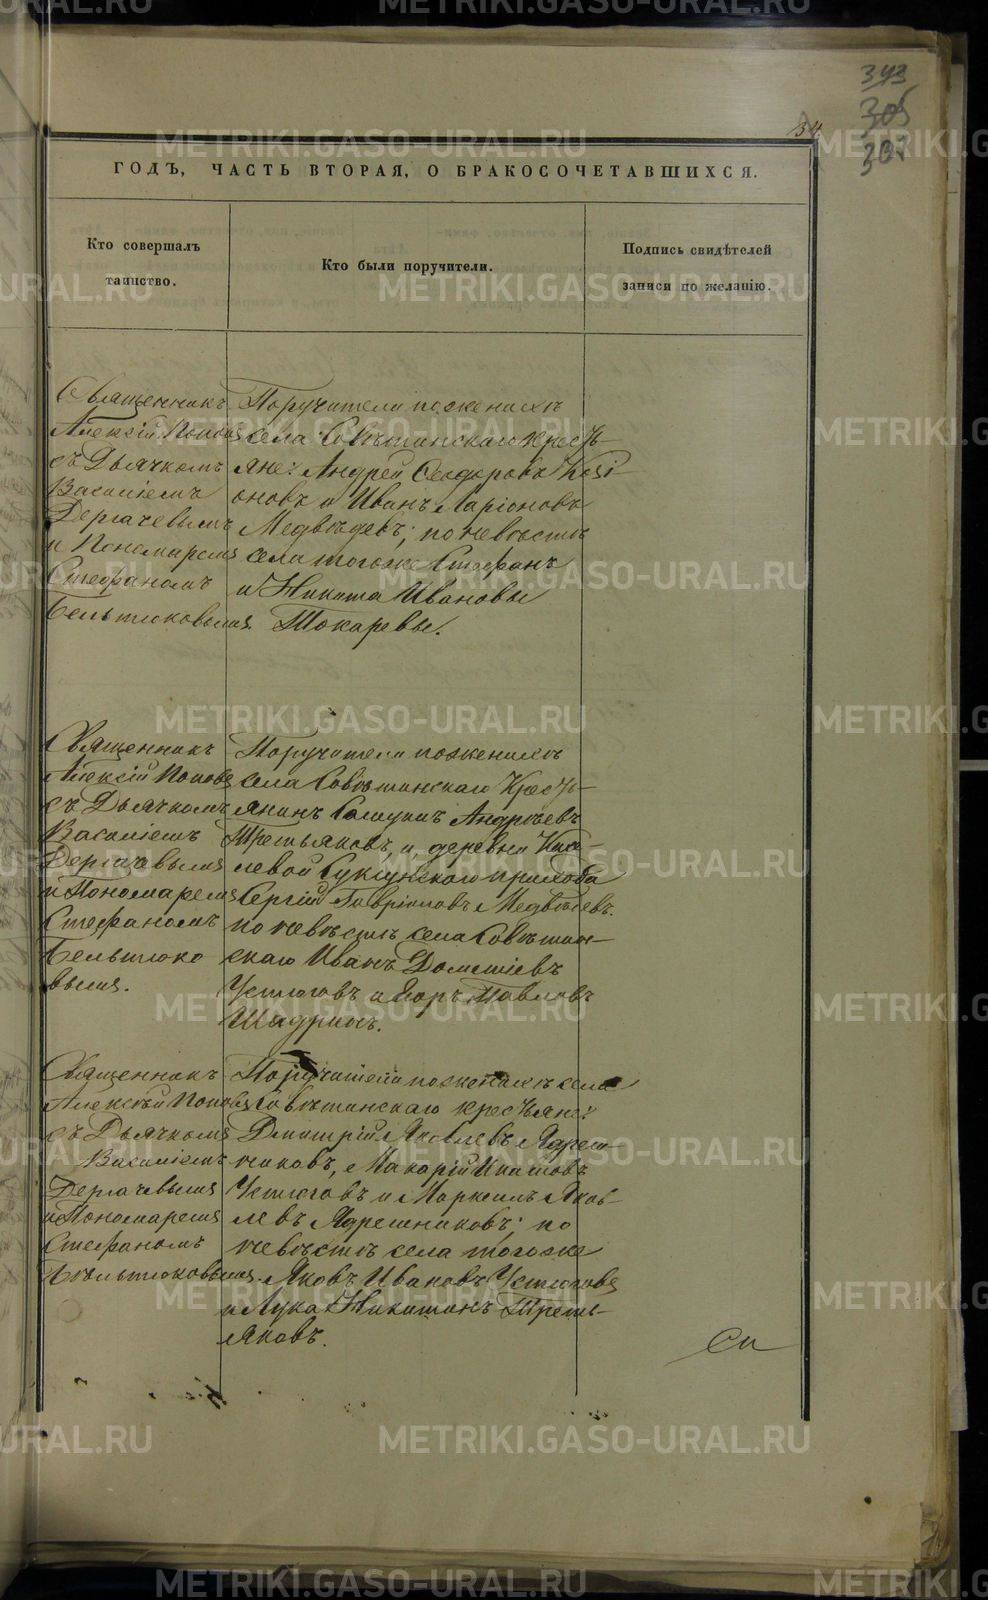 343
305
302
34
ГОДЪ, ЧАСТЬ ВТОРАЯ, О БРАКОСОЧЕТАВШИХСЯ.
Кто совершалъ
таинство.
Кто были поручители.
Подпись свидѣтелей
записи по желанію.
Священникъ
Алексій Поповъ
съ Дьячкомъ
Василіемъ
Дергачевымъ
и Пономаремъ
Стефаномъ
Бельтюковымъ.
Поручители по женихѣ
села Совѣтинскаго кресть-
яне: Андрей Феодоровъ
и Иванъ Ларіоновъ
Медвѣдевъ; по невѣстѣ
села тогоже Стефанъ
и Никита Ивановы
Токаревы.
Священникъ
Алексій Поповъ
съ Дьячкомъ
Василіемъ
Дергачевымъ
и Пономаремъ
Стефаномъ
Бельтюко
вымъ.
Поручители по женихѣ
села Совѣтинскаго кресть-
янинъ Андреевъ
Третьяковъ и деревни
левой прихода
Сергій Гавріиловъ Медвѣдевъ.
по невѣстѣ села Совѣтин-
скаго Иванъ Дометіевъ
Устюговъ и Егоръ Павловъ
Шадринъ.
Священникъ
Алексѣй Поповъ
съ Дьячкомъ
Василіемъ
Дергачевымъ
и Пономаремъ
Стефаномъ
Бельтюковымъ.
Поручители по женихѣ села
Совѣтинскаго крестьяне:
Димитрій Яковлевъ Ядреш-
никовъ, Макарій Ипатовъ
Устюговъ и Маркелъ Яков-
левъ Ядрешниковъ; по
невѣстѣ села тогоже
Яковъ Ивановъ Устюговъ
и Лука Никитинъ Треть-
яковъ.
METRIKI.GASO-URAL.RU